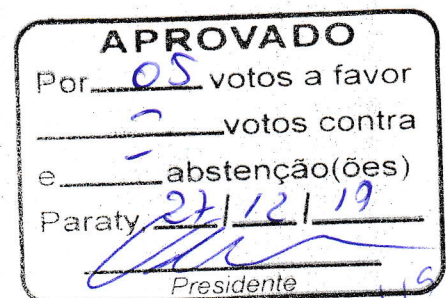 APROVADO
Por 05 votos a favor
- votos contra
e - abstenção(ões)
Paraty, 27/12/19
Presidente